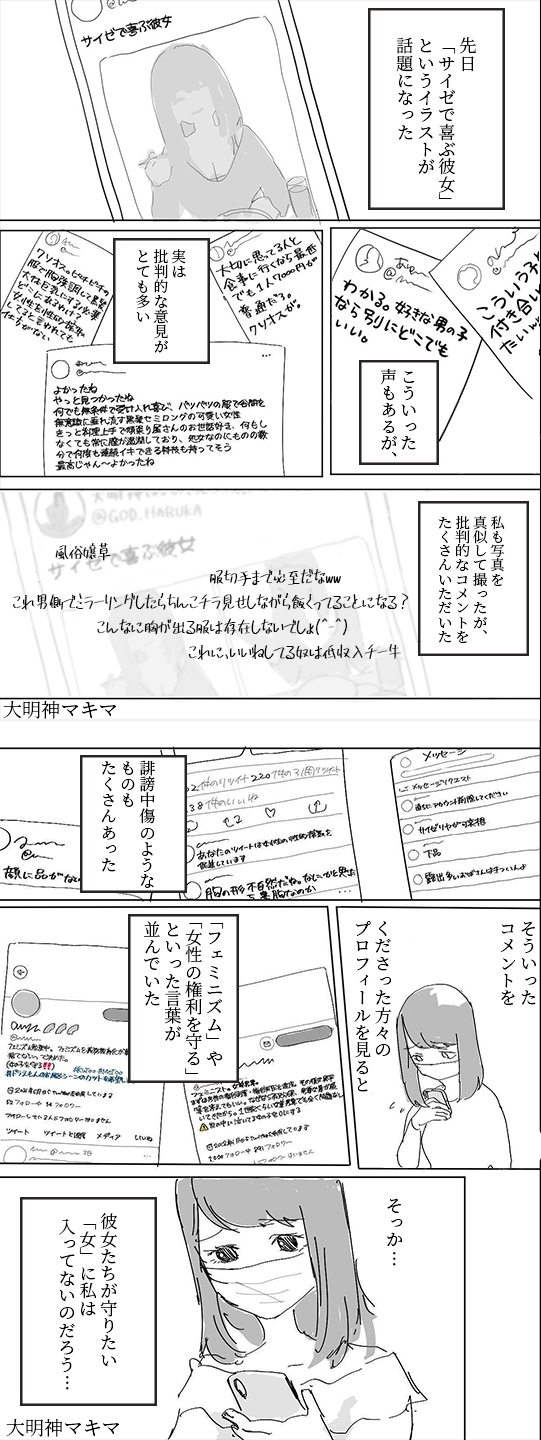 先日
「サイゼで喜ぶ彼女」
というイラストが
話題になった
サイゼで喜ぶ彼女
わかる。好きな男の子
なら別にどこでも
いい。
こういう子と
付き合い
たいw
こういった
声もあるが、
実は
批判的な意見が
とても多い
大切に思ってる人と
食事に行くなら最低
でも1人7000円が
普通だろ。
クソオスが。
クソオス。ピチピチの
服で胸強調して黒髪
仕方がない
よかったね
やっと見つかったね
何でも無条件で受け入れ喜び、パツパツの服で谷間を
無意識に垂れ流す黒髪セミロングの可愛い女性
きっと料理上手で頑張り屋さんのお世話好き、何もし
なくても常に膣が湿潤しており、処女なのにものの数
分で何度も連続イキできる特技も持ってそう
最高じゃん〜よかったね
私も写真を
真似して撮ったが、
批判的なコメントを
たくさんいただいた
大明神マキマ
@GOD_HARUKA
サイゼで喜ぶ彼女
風俗嬢草
服切手まで必至だなww
これ男側でミラーリングしたらちんこチラ見せしながら飯くってることになる?
こんなに胸が出る服は存在しないでしょ(^-^)
これに、いいねしてる奴は低収入チー牛
大明神マキマ
メッセージ
メッセージリクエスト
直ちにアカウント削除してください
サイゼリヤから来ました
下品
露出多いおばさんはきついんよ
220件の引用リツイート
38件のいいね
あなたのツイートは女性の性的搾取を
促進しています
顔に品がない
誹謗中傷のような
ものも
たくさんあった
そういった
コメントを
くださった方々の
プロフィールを見ると
「フェミニズム」や
「女性の権利を守る」
といった言葉が
並んでいた
ツイート ツイートと返信 メディア いいね
そっか…
彼女たちが守りたい
「女」に私は
入ってないのだろう…
大明神マキマ